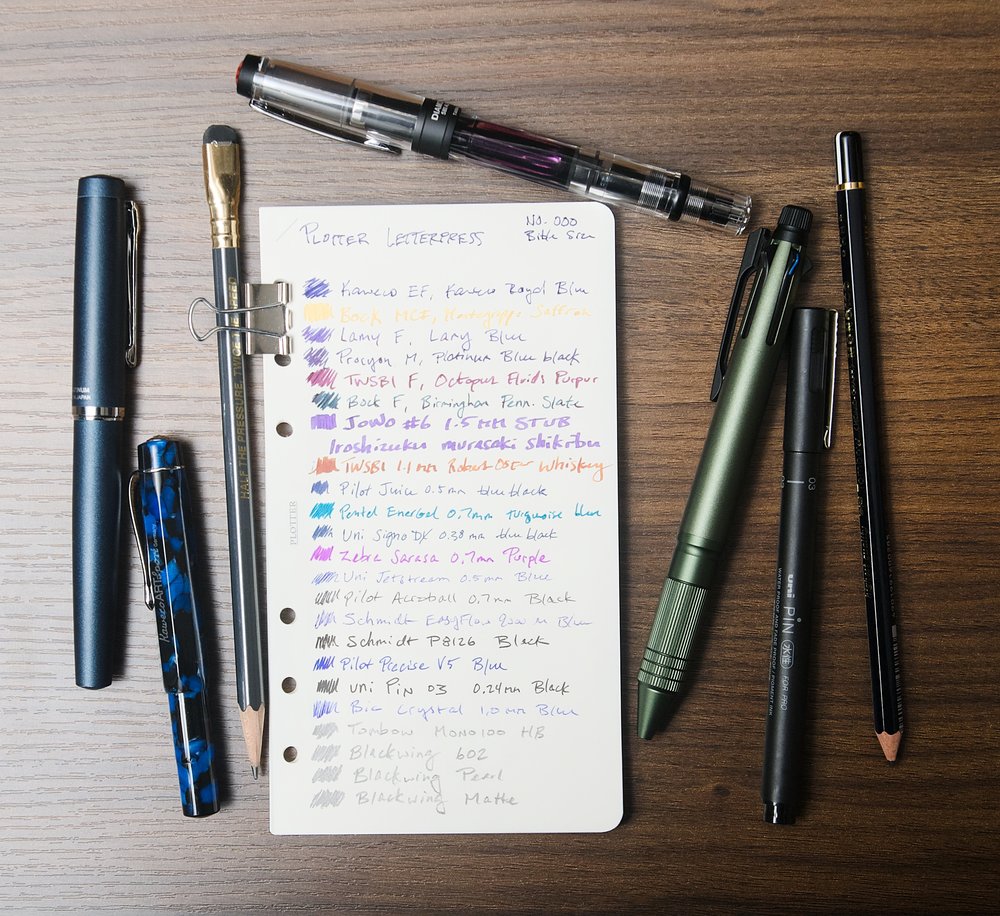 PLOTTER LETTERPRESS
No. 000
Bible Size
Kaweco EF, Kaweco Royal Blue
Bock MCF, Montegrappa Saffron
Lamy F, Lamy Blue
Procyon M, Platinum Blue black
TWSBI F, Octopus Fluids Purpur
Bock F, Birmingham Penn. Slate
JoWo #6 1.5 MM STUB
Iroshizuku murasaki shikibu
TWSBI 1.1 mm Robert Oster Whiskey
Pilot Juice 0.5mm blue black
Pentel Energel 0.7mm turquoise blue
Uni Signo DX 0.38mm blue black
Zebra Sarasa 0.7mm Purple
Uni Jetstream 0.5mm Blue
Pilot Acroball 0.7mm Black
Schmidt EasyFlow 9000 M Blue
Schmidt P8126 Black
Pilot Precise V5 Blue
uni Pin 03 0.24mm Black
Bic Crystal 1.0mm Blue
Tombow MONO100 HB
Blackwing 602
Blackwing Pearl
Blackwing Matte
PLOTTER
HALF THE PRESSURE, TWICE THE SPEED
Kaweco ART Sport
JAPAN
03
uni PIN FOR PRO
WATER PROOF AND FADE PROOF, PIGMENT INK